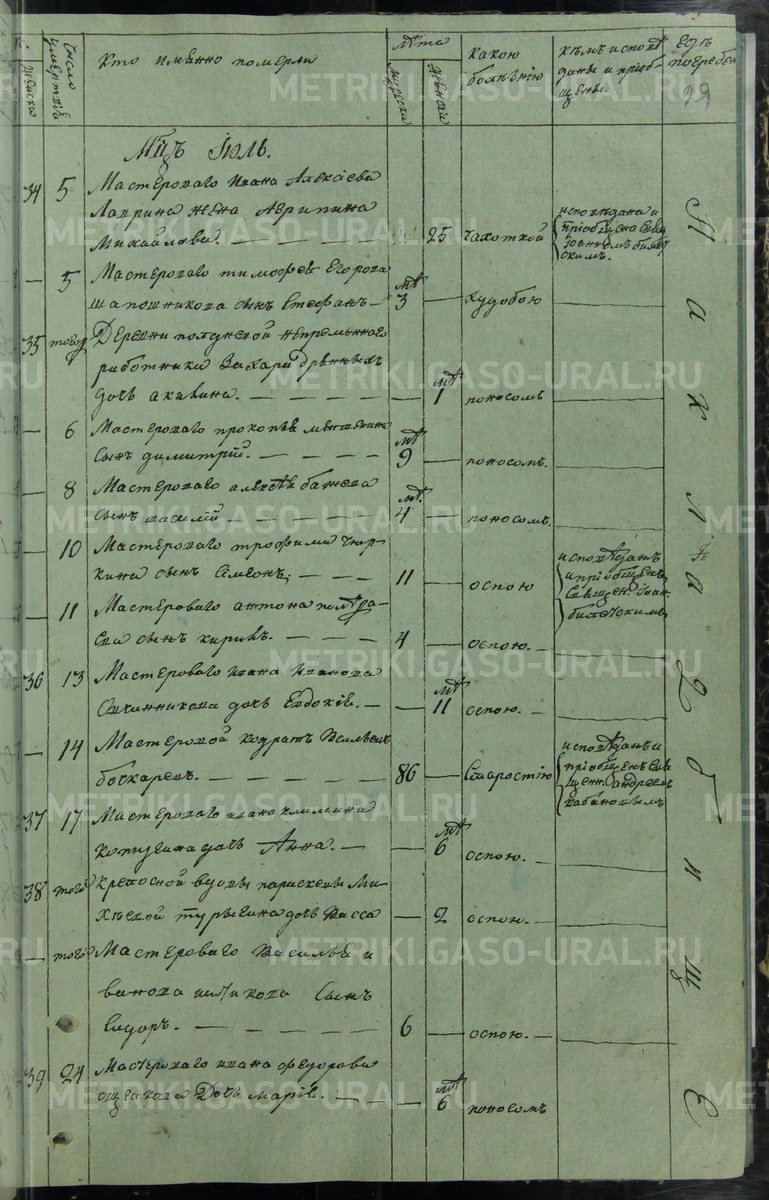 женска
число умертвія
кто имянно померли
лѣта
мужеска
женска
какою
болѣзнію
кѣмъ исповѣ
даны и пріоб-
щены.
гдѣ
погребены
29
Мцъ Июль.
34 5 Мастероваго Ивана Алексѣева
Лаврина жена Агрипина
Михайлова. 25 чахоткой
исповѣдана и
пріобщена свящ
Іоанномъ
скимъ.
5 Мастероваго тимофея Егорова
шапошникова сынъ Стефанъ
мѣ
3 худобою
35 тогож Деревни непременного
работника Захара древныхъ
дочь акилина.
мѣ
1 поносомъ
6 Мастероваго прокопья
сынъ димитрій.
мѣ
9 поносомъ.
8 Мастероваго алексѣя бажева
сынъ василій
мѣ.
4 поносомъ.
10 Мастероваго трофима чюр-
кина сынъ Семіонъ. 11 оспою
исповѣданъ
и пріобщенъ
священ. Іоан.
11 Мастероваго антона
ева сынъ кирилъ. 4 оспою.
36 13 Мастероваго ивана иванова
Овчинникова дочь Евдокія.
мѣ
11 оспою.
14 Мастеровой кодратъ Васильевъ
бочкаревъ. 86 Старостію
исповѣданъ и
пріобщенъ свя
щенн. андреемъ
кабановымъ
37 17 Мастероваго ивана климина
дочь Анна.
мѣ
6 оспою.
38 тогож крепосной вдовы парасковьи Ми-
дочь Васса 2 оспою.
тогож Мастероваго Василья и
ванова сынъ
Сидоръ. 6 оспою.
39 24 Мастероваго ивана федорова
ощепкова Дочь марія.
мѣ
6 поносомъ
На кладбище
METRIKI.GASO-URAL.RU